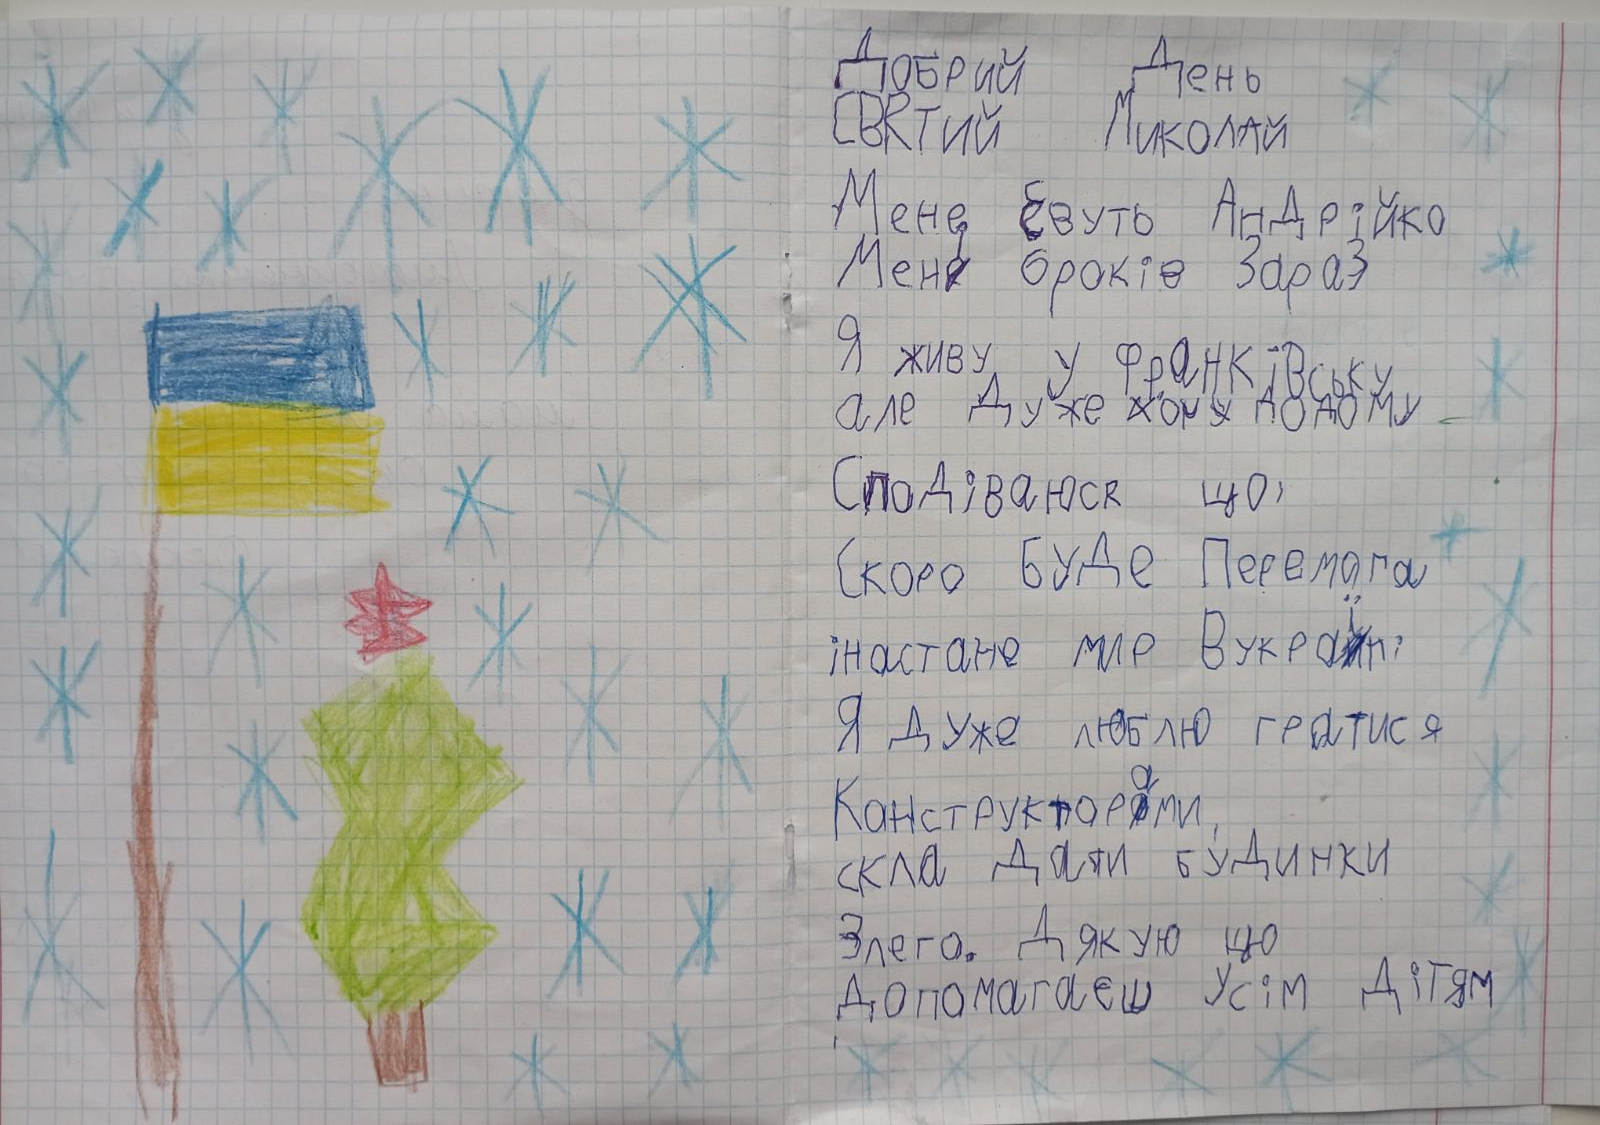 Добрий День
Святий Миколай
Мене звуть Андрійко
Мені 6років Зараз
Я живу у Франківську
але Дуже хочу додому
Сподіваюся що,
Скоро Буде Перемога
інастане мир Вукраїні
Я дуже люблю гратися
Канструкторами,
складати будинки
Злего. Дякую що
Допомагаєш Усім Дітям